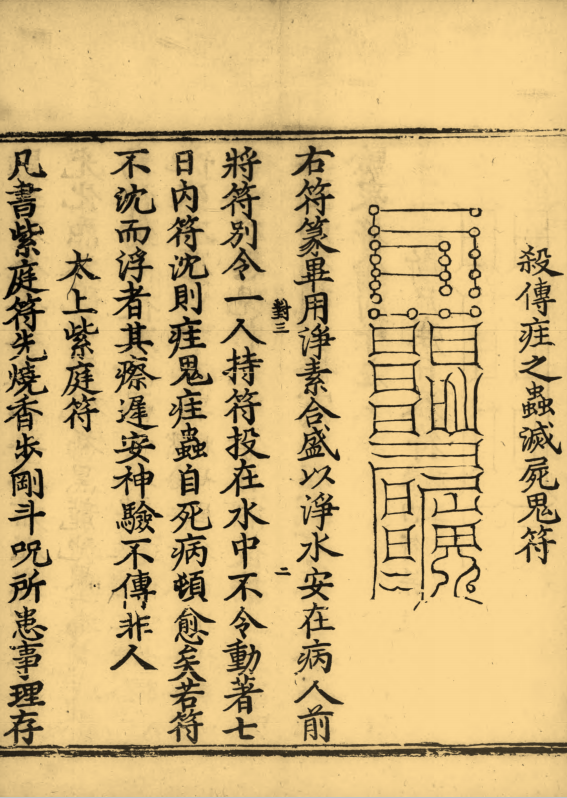 殺傳疰之蟲滅屍鬼符
右符篆畢用淨素合盛以淨水安在病人前
對三
二
將符別令一人持符投在水中不令動著七
日内符沈則疰鬼疰蟲自死病頓愈矣若符
不沈而浮者其瘵遲安神驗不傳非人
太上紫庭符
凡書紫庭符先燒香步剛斗呪所患事理存